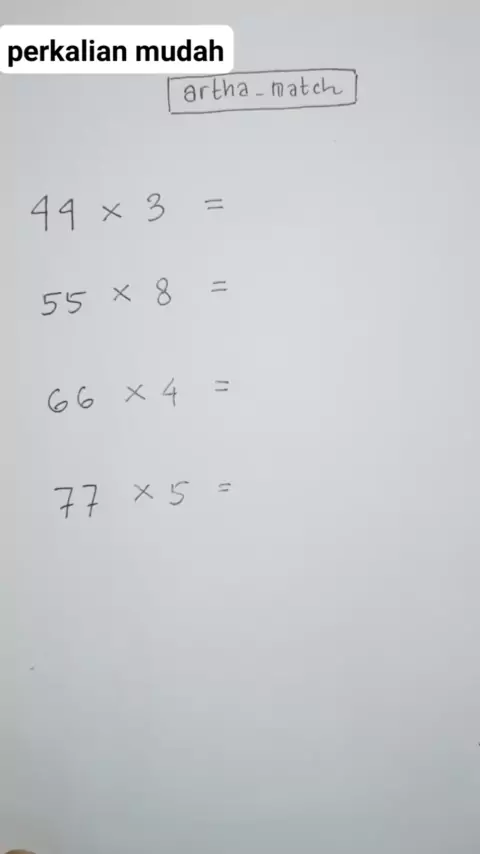 perkalian mudah
artha_match
44 × 3 =
55 × 8 =
66 × 4 =
77 × 5 =